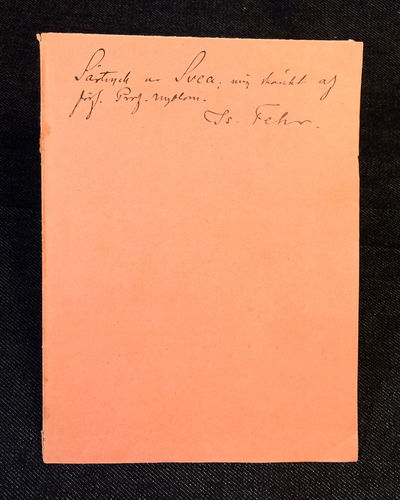 Särtryck ur Svea, mig skänkt af
förf. Prof. Nyblom.
Is. Fehr.